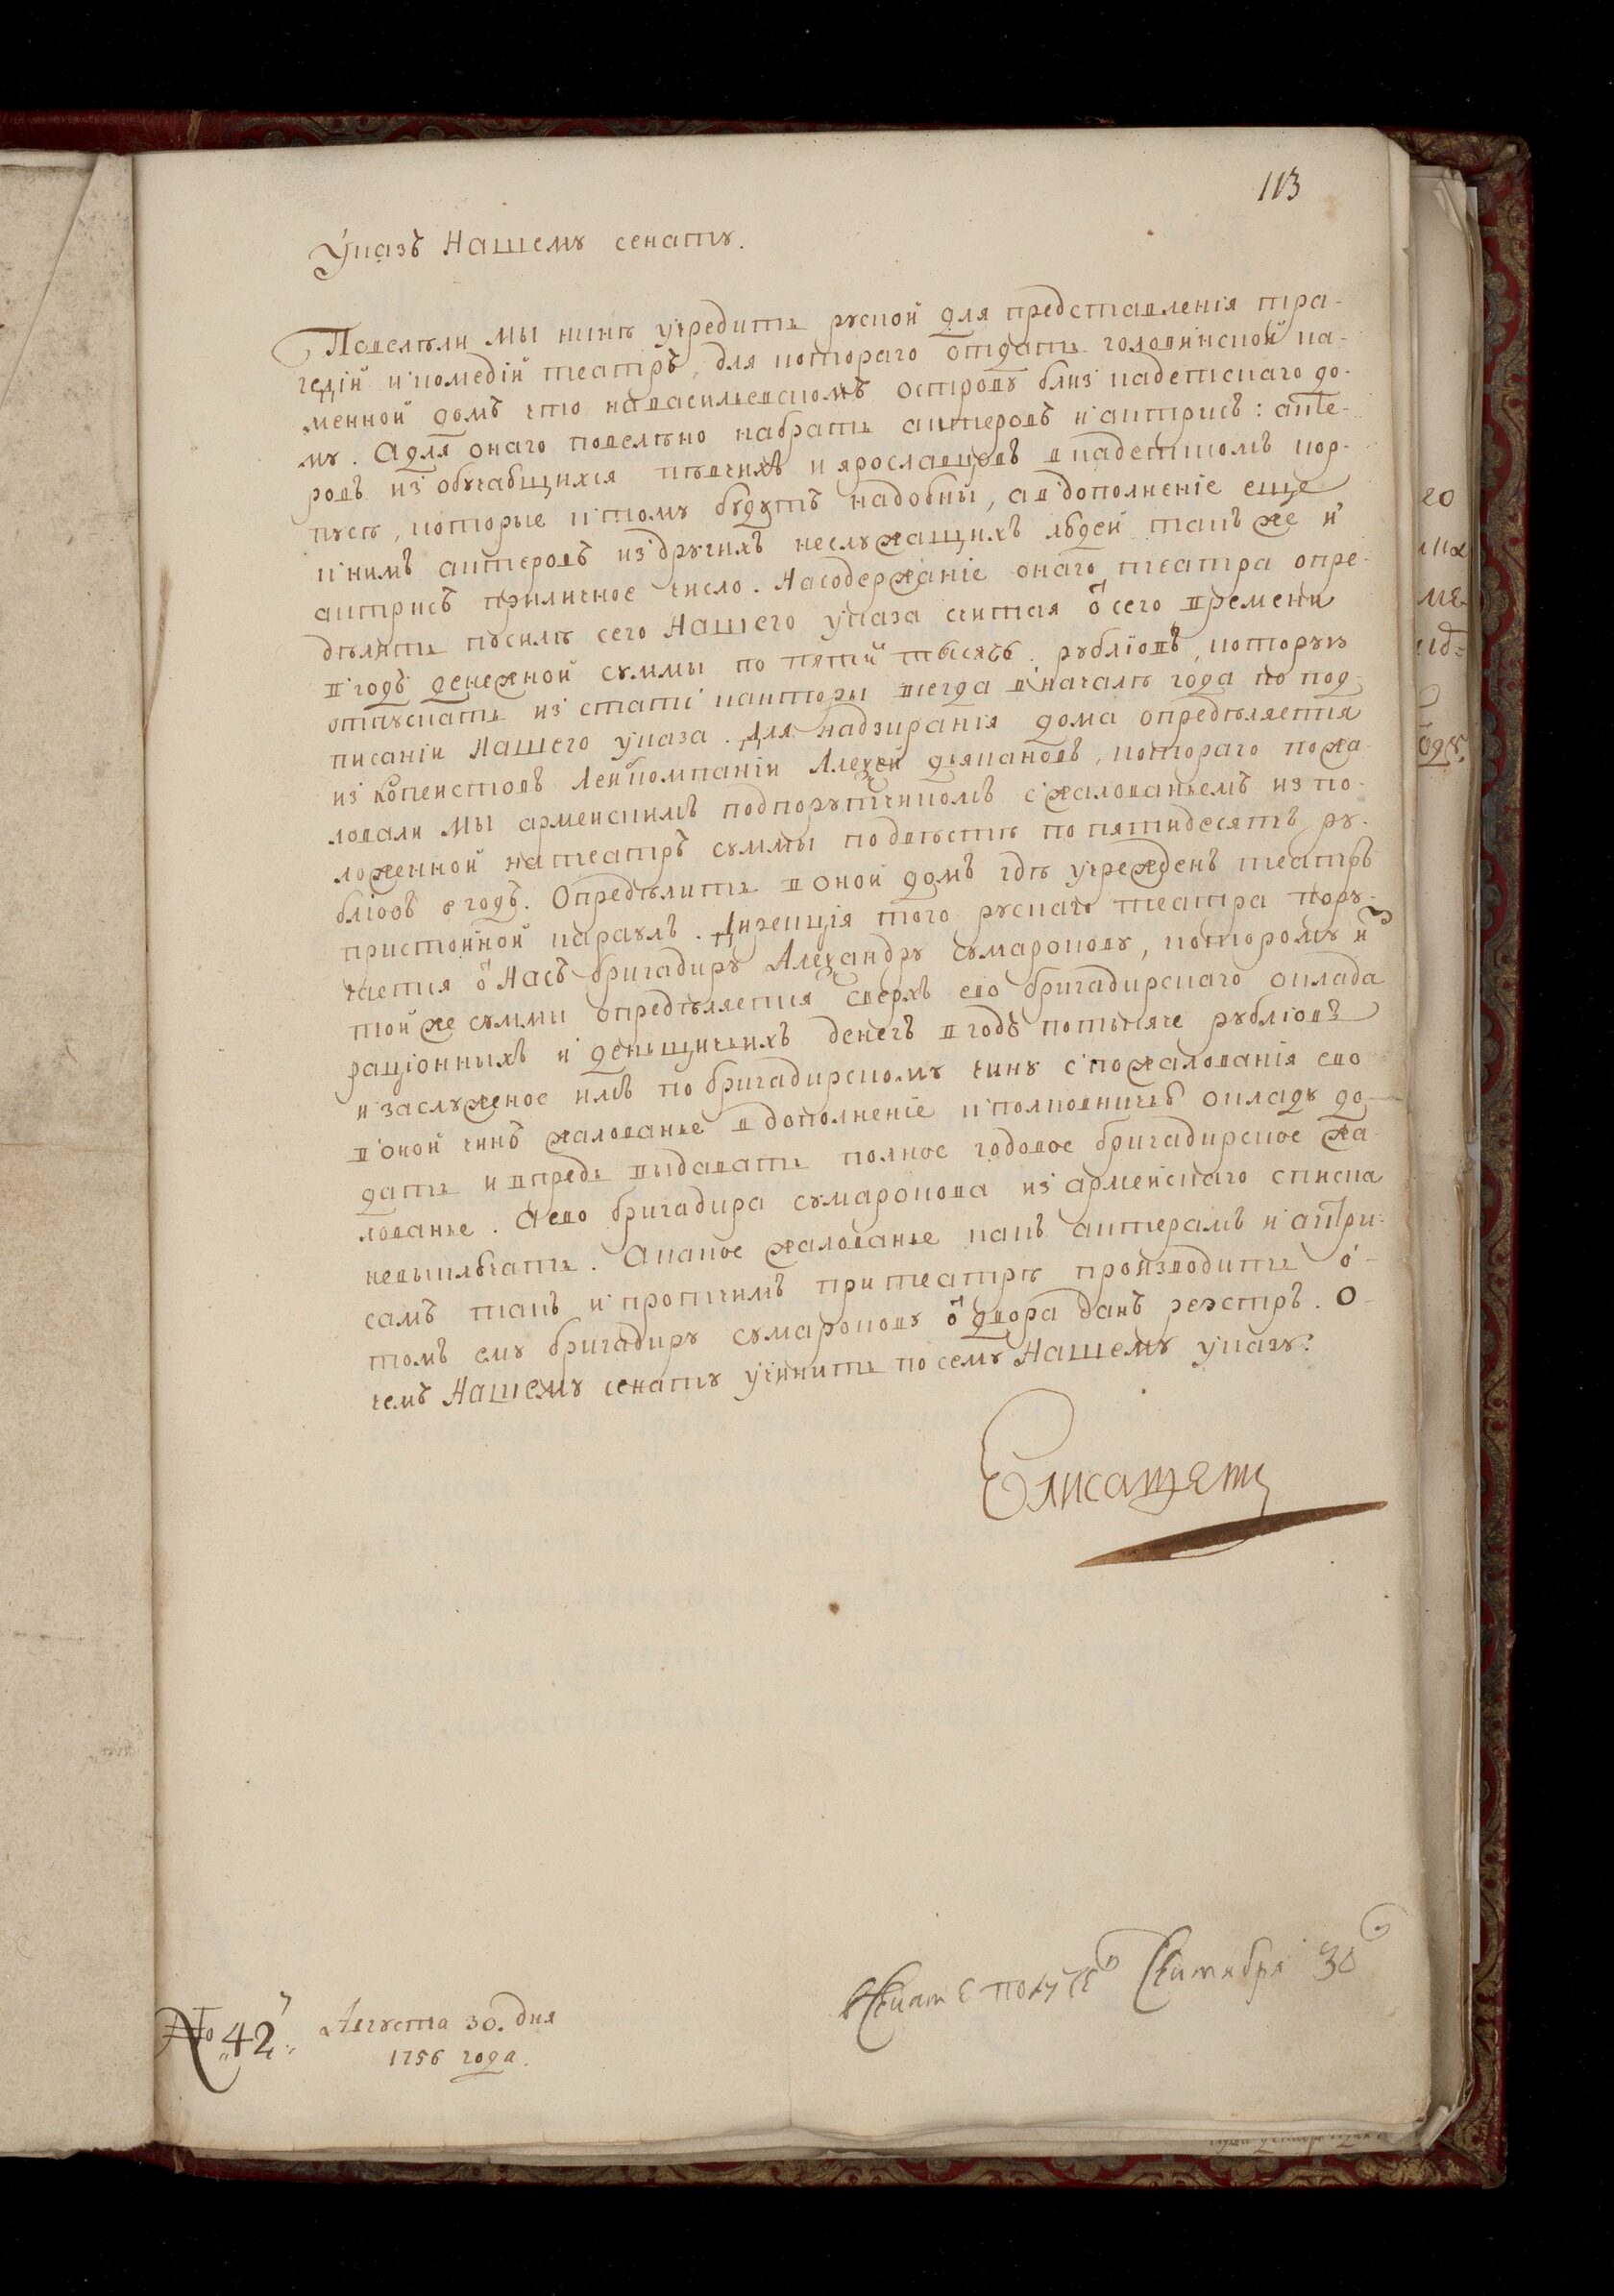 113
Указъ Нашему сенату.
Повелѣли мы нынѣ учредить руской для представленія тра-
гедій и комедій театръ, для котораго отдать головинской ка-
менной домъ что на васильевскомъ острову близ кадетскаго до-
му. А для онаго повелѣно набрать актеровъ и актрисъ: акте-
ровъ из обучающихся пѣвчихъ и ярославцовъ в кадетскомъ кор-
пусѣ, которые к тому будутъ надобны, а в дополненіе еще
к нимъ актеровъ из другихъ неслужащихъ людей также и
актрисъ приличное число. На содержаніе онаго театра опре-
дѣлить по силѣ сего Нашего указа считая от сего времени
в годъ денежной суммы по пяти тысячь рубліовъ, которую
отпускать из статс канторы всегда в началѣ года по под-
писаніи Нашего указа. Для надзиранія дома опредѣляется
из копеистовъ Лейбкомпаніи Алексей дьяконовъ, котораго пожа-
ловали мы арменскимъ подпорутчикомъ с жалованьемъ из по-
ложенной на театръ суммы по двѣсти по пятидесятъ ру-
бліовъ в годъ. Опредѣлить в оной домъ гдѣ учрежденъ театръ
пристойной караулъ. Дирекція того рускаго театра пору-
чается от Насъ бригадиру Александру сумарокову, которому из
той же суммы опредѣляется сверхъ ево бригадирскаго оклада
раціонныхъ и деньщичьихъ денегъ в годъ по тысяче рубліовъ
и заслуженое имъ по бригадирскому чину с пожалованія ево
в оной чинъ жалованье в дополненіе к полковничью окладу до-
дать и впредь выдавать полное годовое бригадирское жа-
лованье. А ево бригадира сумарокова из армейскаго списка
невыключать. А какое жалованье какъ актерамъ и актри-
самъ такъ и протчимъ при театрѣ производить о-
томъ ему бригадиру сумарокову от двора данъ реэстръ. О-
чемъ Нашему сенату учинить по сему Нашему указу.
Елисаветъ
№ 42
Августа 30. дня
1756 года.
Сентября 30